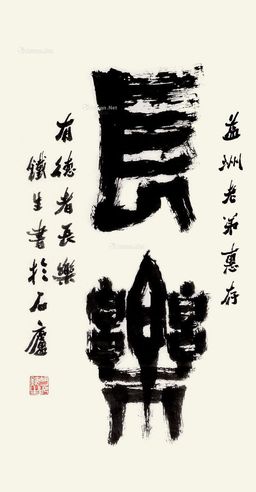 益洲老弟惠存
長樂
有德者長樂
鐵生書於石廬